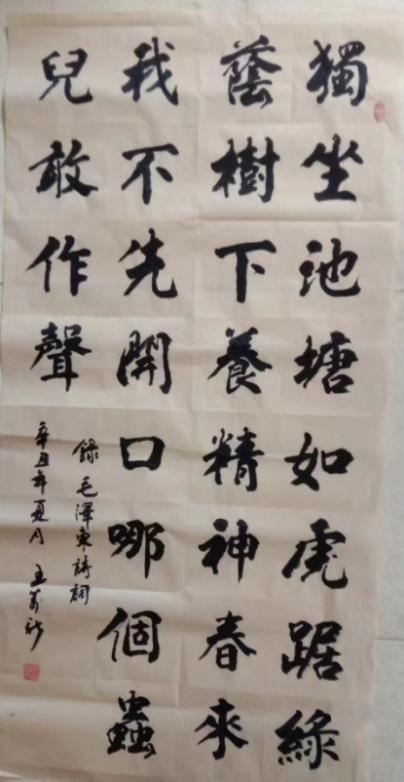 獨坐池塘如虎踞綠
蔭樹下養精神春來
我不先開口哪個蟲
兒敢作聲
錄毛澤東詩詞
辛丑年夏月 王